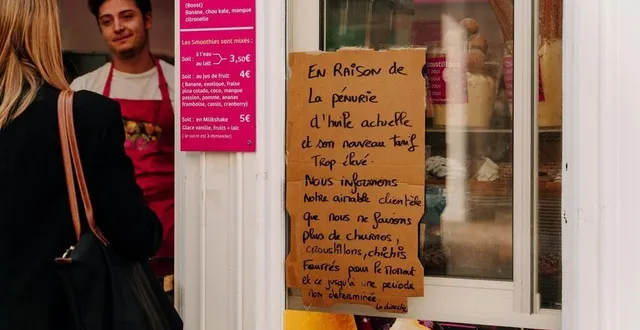 (Boost)
Banane, chou kale, mangue
citronelle
Les Smoothies sont mixés :
Soit : à l'eau
au lait
3,50€
Soit : au Jus de fruit 4€
( Banane, exotique, fraise
pina colada, coco, mangue
passion, pomme, ananas
framboise, cassis, cranberry)
Soit : en Milkshake 5€
Glace vanille, fruits + lait
( le sucre est à demander)
En Raison de
La pénurie
d'huile actuelle
et son nouveau tarif
Trop élevé.
Nous informons
Notre aimable clientèle
que nous ne faisons
plus de churros,
croustillons, chichis
Fourrés pour le Moment
et ce jusqu'à une période
non déterminée
La direction